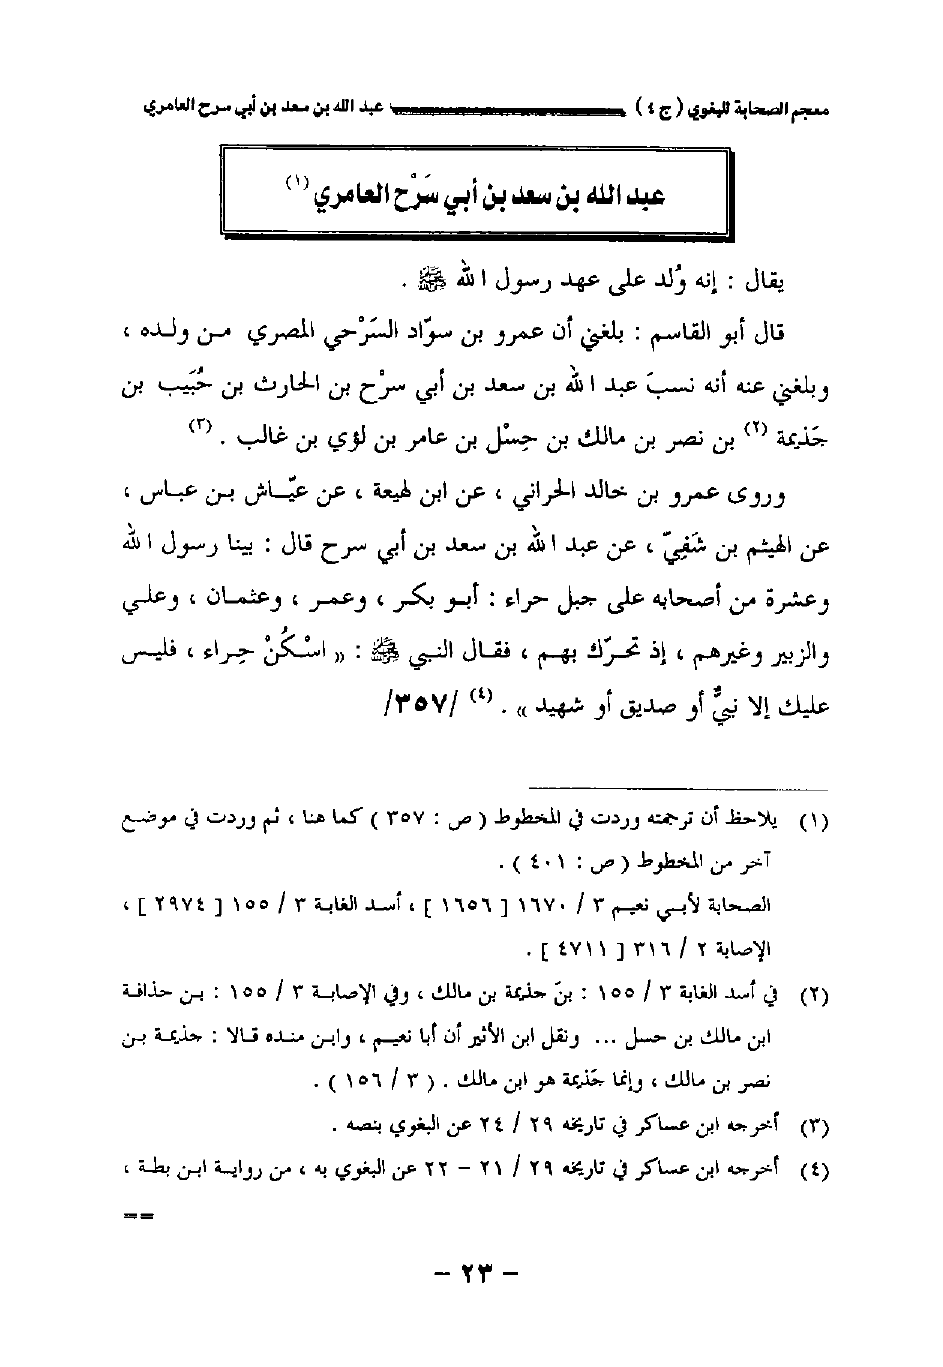 معجم الصحابة للبغوي ( ج ٤ ) عبد الله بن سعد بن أبي سرح العامري
عبد الله بن سعد بن أبي سَرْح العامري (١)
يقال : إنه وُلد على عهد رسول الله ﷺ .
قال أبو القاسم : بلغني أن عمرو بن سوّاد السَرْحي المصري من ولده ،
وبلغني عنه أنه نسبَ عبد الله بن سعد بن أبي سرْح بن الحارث بن حُبَيب بن
جَذيمة (٢) بن نصر بن مالك بن حِسْل بن عامر بن لؤي بن غالب . (٣)
وروى عمرو بن خالد الحراني ، عن ابن لهيعة ، عن عيّاش بن عباس ،
عن الهيثم بن شَفِيّ ، عن عبد الله بن سعد بن أبي سرح قال : بينا رسول الله
وعشرة من أصحابه على جبل حراء : أبو بكر ، وعمر ، وعثمان ، وعلي
والزبير وغيرهم ، إذ تحرّك بهم ، فقال النبي ﷺ : « اسْكُنْ حِراء ، فليس
عليك إلا نبيٌّ أو صديق أو شهيد » . (٤) /٣٥٧/
(١) يلاحظ أن ترجمته وردت في المخطوط ( ص : ٣٥٧ ) كما هنا ، ثم وردت في موضع
آخر من المخطوط ( ص : ٤٠١ ) .
الصحابة لأبي نعيم ٣ / ١٦٧٠ [ ١٦٥٦ ] ، أسد الغابة ٣ / ١٥٥ [ ٢٩٧٤ ] ،
الإصابة ٢ / ٣١٦ [ ٤٧١١ ] .
(٢) في أسد الغابة ٣ / ١٥٥ : بن جذيمة بن مالك ، وفي الإصابة ٣ / ١٥٥ : بن حذافة
ابن مالك بن حسل ... ونقل ابن الأثير أن أبا نعيم ، وابن منده قالا : جذيمة بن
نصر بن مالك ، وإنما جَذيمة هو ابن مالك . ( ٣ / ١٥٦ ) .
(٣) أخرجه ابن عساكر في تاريخه ٢٩ / ٢٤ عن البغوي بنصه .
(٤) أخرجه ابن عساكر في تاريخه ٢٩ / ٢١ – ٢٢ عن البغوي به ، من رواية ابن بطة ،
==
– ٢٣ –